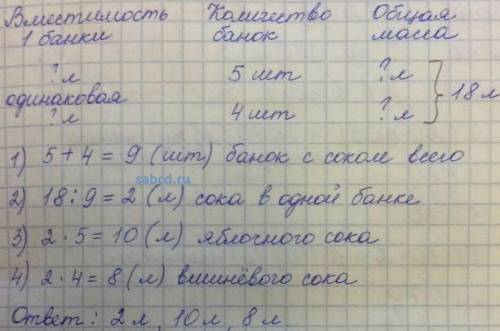 Вместимость Количество Общая
1 банки банок масса
? л 5 шт ? л
одинаковая 18 л
? л 4 шт ? л
1) 5 + 4 = 9 (шт) банок с соком всего
sabcd.ru
2) 18 : 9 = 2 (л) сока в одной банке
3) 2 · 5 = 10 (л) яблочного сока
4) 2 · 4 = 8 (л) вишнёвого сока
Ответ: 2 л, 10 л, 8 л.